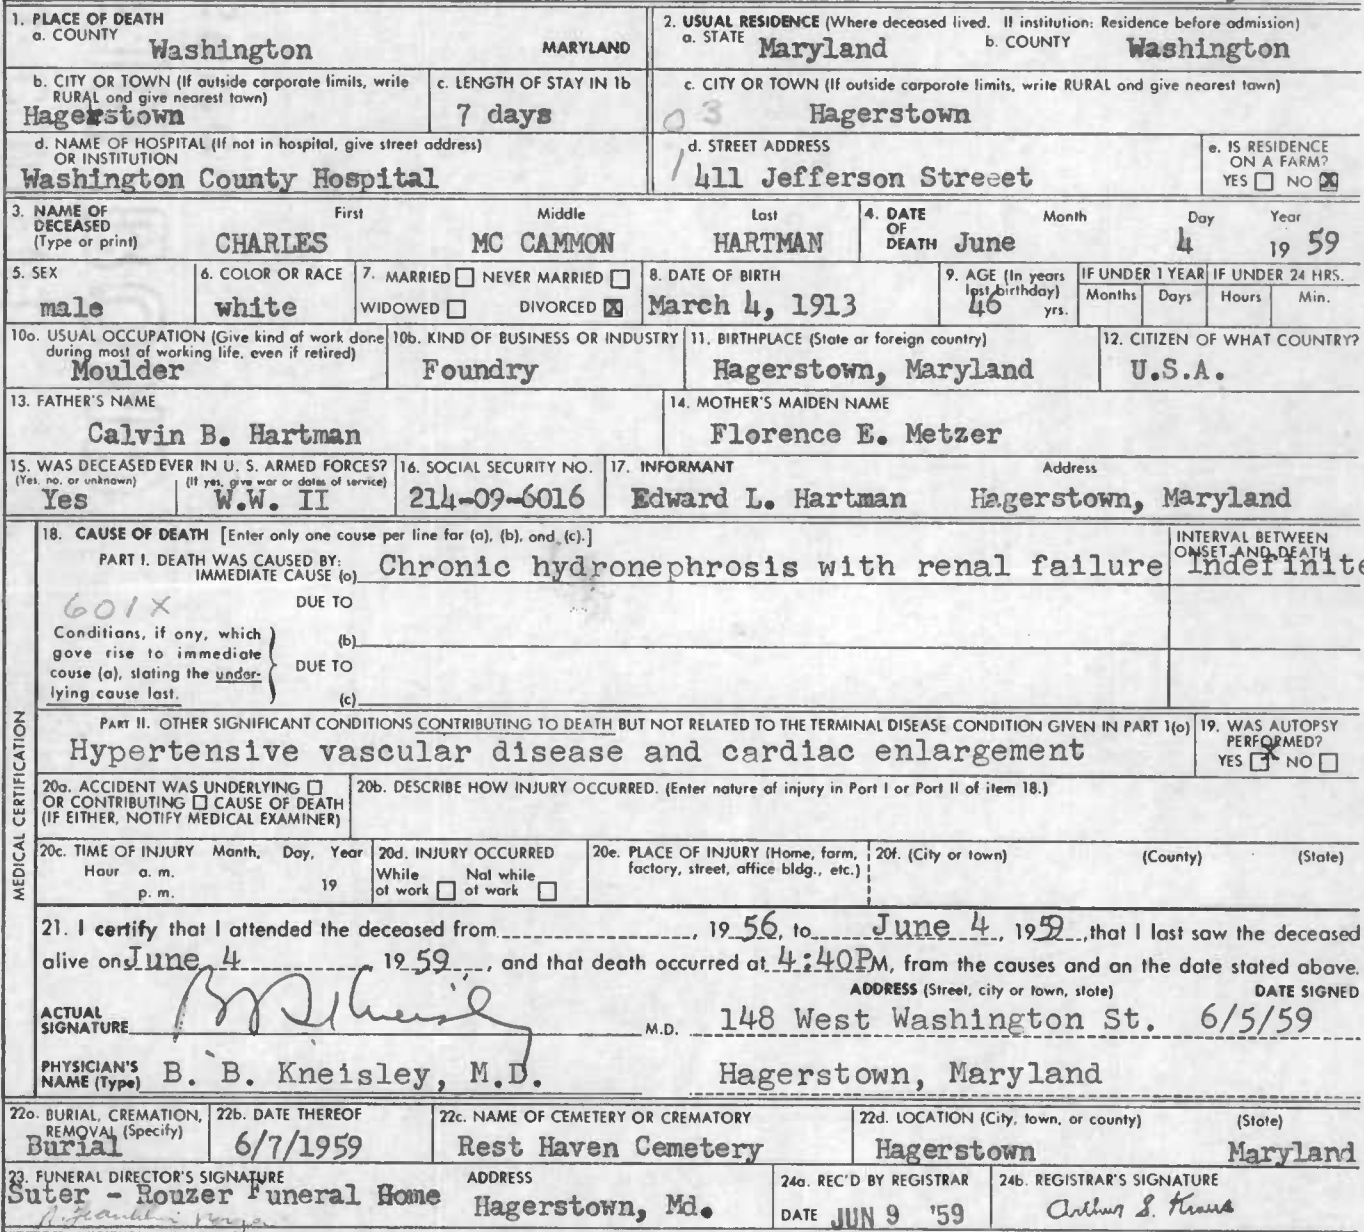 1. PLACE OF DEATH
a. COUNTY
Washington MARYLAND
2. USUAL RESIDENCE (Where deceased lived. If institution: Residence before admission)
a. STATE Maryland b. COUNTY Washington
b. CITY OR TOWN (If outside corporate limits, write RURAL and give nearest town)
Hagerstown
c. LENGTH OF STAY IN 1b
7 days
c. CITY OR TOWN (If outside corporate limits, write RURAL and give nearest town)
03 Hagerstown
d. NAME OF HOSPITAL (If not in hospital, give street address)
OR INSTITUTION
Washington County Hospital
d. STREET ADDRESS
1 411 Jefferson Streeet
e. IS RESIDENCE
ON A FARM?
YES NO X
3. NAME OF
DECEASED
(Type or print)
First Middle Last
CHARLES MC CAMMON HARTMAN
4. DATE
OF
DEATH
Month Day Year
June 4 19 59
5. SEX
male
6. COLOR OR RACE
white
7. MARRIED NEVER MARRIED
WIDOWED DIVORCED X
8. DATE OF BIRTH
March 4, 1913
9. AGE (In years
last birthday)
46 yrs.
IF UNDER 1 YEAR IF UNDER 24 HRS.
Months Days Hours Min.
10a. USUAL OCCUPATION (Give kind of work done
during most of working life, even if retired)
Moulder
10b. KIND OF BUSINESS OR INDUSTRY
Foundry
11. BIRTHPLACE (State or foreign country)
Hagerstown, Maryland
12. CITIZEN OF WHAT COUNTRY?
U.S.A.
13. FATHER'S NAME
Calvin B. Hartman
14. MOTHER'S MAIDEN NAME
Florence E. Metzer
15. WAS DECEASED EVER IN U. S. ARMED FORCES?
(Yes, no, or unknown) (If yes, give war or dates of service)
Yes W.W. II
16. SOCIAL SECURITY NO.
214-09-6016
17. INFORMANT Address
Edward L. Hartman Hagerstown, Maryland
MEDICAL CERTIFICATION
18. CAUSE OF DEATH [Enter only one cause per line for (a), (b), and (c).]
PART I. DEATH WAS CAUSED BY:
IMMEDIATE CAUSE (a) Chronic hydronephrosis with renal failure
INTERVAL BETWEEN
ONSET AND DEATH
Indefinite
601X
DUE TO
Conditions, if any, which
gave rise to immediate
cause (a), stating the under-
lying cause last.
(b)
DUE TO
(c)
PART II. OTHER SIGNIFICANT CONDITIONS CONTRIBUTING TO DEATH BUT NOT RELATED TO THE TERMINAL DISEASE CONDITION GIVEN IN PART 1(a)
Hypertensive vascular disease and cardiac enlargement
19. WAS AUTOPSY
PERFORMED?
YES X NO
20a. ACCIDENT WAS UNDERLYING
OR CONTRIBUTING CAUSE OF DEATH
(IF EITHER, NOTIFY MEDICAL EXAMINER)
20b. DESCRIBE HOW INJURY OCCURRED. (Enter nature of injury in Part I or Part II of item 18.)
20c. TIME OF INJURY Month, Day, Year
Hour a. m.
p. m. 19
20d. INJURY OCCURRED
While Not while
at work at work
20e. PLACE OF INJURY (Home, farm,
factory, street, office bldg., etc.)
20f. (City or town) (County) (State)
21. I certify that I attended the deceased from , 19 56, to June 4, 1959, that I last saw the deceased
alive on June 4 , 1959 , and that death occurred at 4:40PM, from the causes and on the date stated above.
ADDRESS (Street, city or town, state) DATE SIGNED
ACTUAL
SIGNATURE B B Kneisley M.D. 148 West Washington St. 6/5/59
PHYSICIAN'S
NAME (Type) B. B. Kneisley, M.D. Hagerstown, Maryland
22a. BURIAL, CREMATION,
REMOVAL (Specify)
Burial
22b. DATE THEREOF
6/7/1959
22c. NAME OF CEMETERY OR CREMATORY
Rest Haven Cemetery
22d. LOCATION (City, town, or county) (State)
Hagerstown Maryland
23. FUNERAL DIRECTOR'S SIGNATURE ADDRESS
Suter - Rouzer Funeral Home Hagerstown, Md.
24a. REC'D BY REGISTRAR
DATE JUN 9 '59
24b. REGISTRAR'S SIGNATURE
Arthur S. Kraus